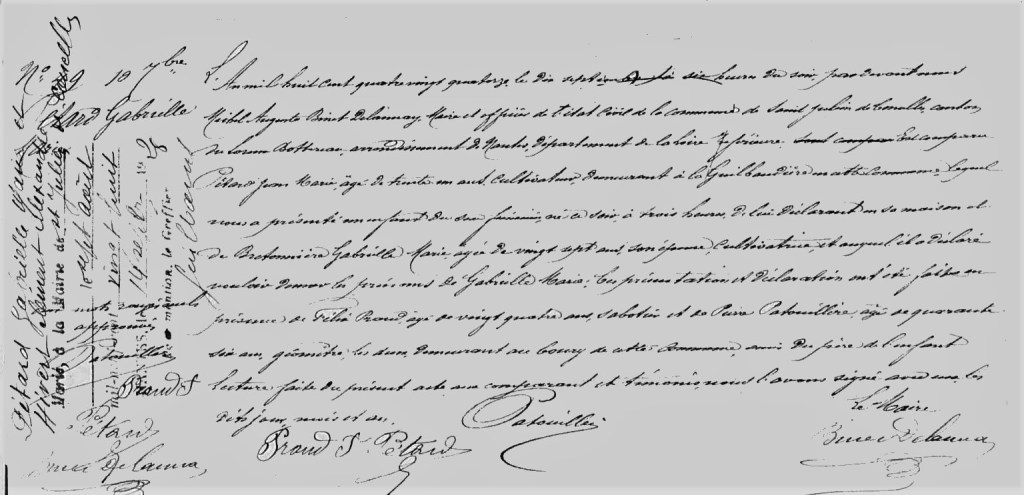 N° 9 10 7bre
Pétard Gabrielle
Pétard Gabrielle Marie et
Hivert Clément Alexandre
Marié, à la Mairie de St Julien de Concelles
le sept août
mil neuf cent vingt huit
MENTION
le Greffier
L'An mil huit cent quatre vingt quatorze le dix septembre à six heures du soir, par devant nous
Michel Auguste Binet Delaunay, Maire et officier de l'état Civil de la commune de Saint Julien de Concelles, canton
du Loroux Bottereau, arrondissement de Nantes, Département de la Loire Inférieure, sont comparu Est comparu
Pétard Jean Marie, âgé de trente un ans, Cultivateur, demeurant à la Guilbaudière en cette Commune, Lequel
nous a présenté un enfant du sexe féminin, né ce soir, à trois heures, de lui déclarant en sa maison et
de Bretonnière Gabrielle Marie, agée de vingt sept ans, son épouse, Cultivatrice, et auquel il a déclaré
vouloir donner les prénoms de Gabrielle Marie. Ces présentation et déclaration ont été faites en
présence de Félix Praud, âgé de vingt quatre ans, sabotier et de Pierre Patouillère, âgé de quarante
six ans, géomètre, les deux demeurant au bourg de cette Commune, amis du père de l'enfant
lecture faite du présent acte aux comparant et témoins, nous l'avons signé avec eux, les
dits jour, mois et an.
mots rayés nuls
approuvés
Patouillère
Praud F
Pétard
Binet Delaunay
Praud F Pétard
Patouillère
Le Maire
Binet Delaunay